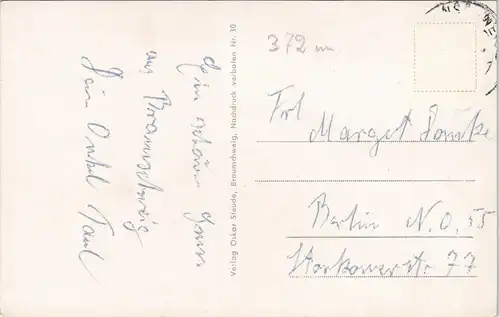 Ein schöner Gruss
aus Braunschweig
Dein Onkel Paul
Verlag Oskar Staude, Braunschweig, Nachdruck verboten Nr. 30
372
Frl
Margot
Berlin N.O. 55
Storkowerstr 77